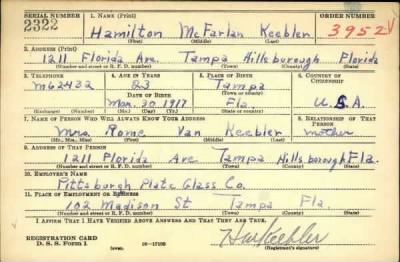 SERIAL NUMBER 1. NAME (Print)
2322 Hamilton McFarlan Keebler 3952
(First) (Middle) (Last)
2. ADDRESS (Print)
1211 Florida Ave. Tampa Hillsborough Florida
(Number and street or R. F. D. number) (Town) (County) (State)
3. TELEPHONE 4. AGE IN YEARS 5. PLACE OF BIRTH 6. COUNTRY OF CITIZENSHIP
M62432 23 Tampa
(Town or county)
DATE OF BIRTH
Mar. 30 1917 Fla. U.S.A
(Mo.) (Day) (Yr.) (State or country)
7. NAME OF PERSON WHO WILL ALWAYS KNOW YOUR ADDRESS 8. RELATIONSHIP OF THAT PERSON
Mrs. Rome Van Keebler mother
(Mr., Mrs., Miss) (First) (Middle) (Last)
9. ADDRESS OF THAT PERSON
1211 Florida Ave Tampa Hillsborough Fla.
(Number and street or R. F. D. number) (Town) (County) (State)
10. EMPLOYER'S NAME
Pittsburgh Plate Glass Co.
11. PLACE OF EMPLOYMENT OR BUSINESS
102 Madison St Tampa Fla.
(Number and street or R. F. D. number) (Town) (County) (State)
I AFFIRM THAT I HAVE VERIFIED ABOVE ANSWERS AND THAT THEY ARE TRUE.
REGISTRATION CARD
D. S. S. Form 1 (over) 16—17105 HMKeebler
(Registrant's signature)